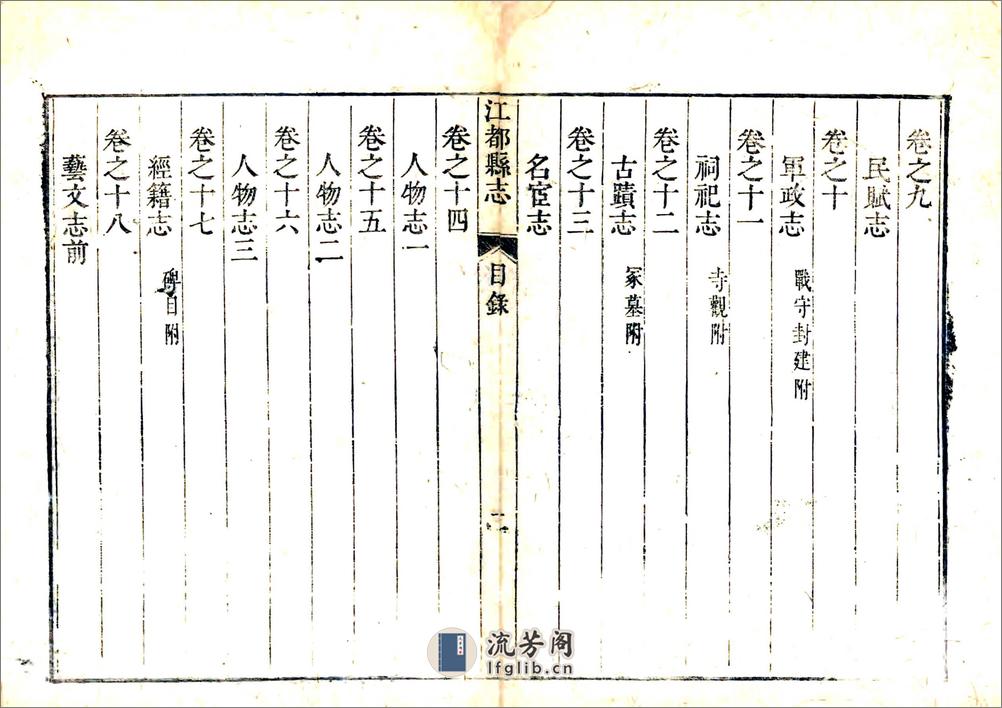 卷之九
民賦志
卷之十
軍政志 戰守封建附
卷之十一
祠祀志 寺觀附
卷之十二
古蹟志 冢墓附
卷之十三
名宦志
江都縣志 目錄 一
卷之十四
人物志一
卷之十五
人物志二
卷之十六
人物志三
卷之十七
經籍志 碑目附
卷之十八
藝文志前
流芳阁
lfglib.cn